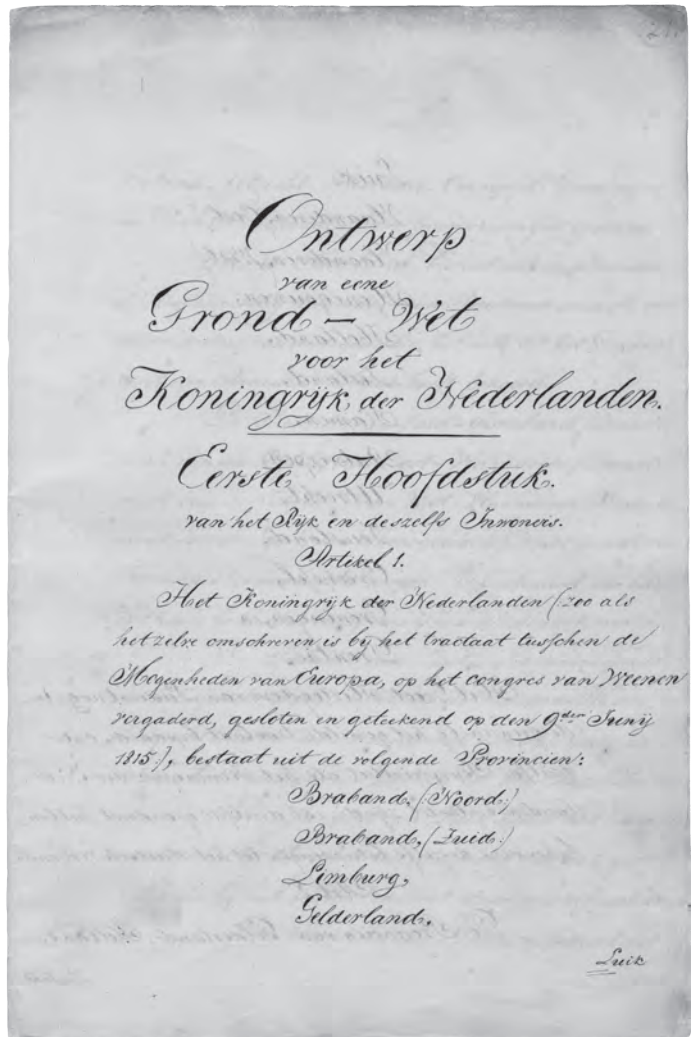 21.
Ontwerp
van eene
Grond – Wet
voor het
Koningrijk der Nederlanden.
Eerste Hoofdstuk.
van het Rijk en deszelfs Inwoners.
Artikel 1.
Het Koningrijk der Nederlanden (:zoo als
hetzelve omschreven is bij het tractaat tusschen de
Mogenheden van Europa, op het congres van Weenen
vergaderd, gesloten en geteekend op den 9den Junij
1815:), bestaat uit de volgende Provincien:
Braband, (:Noord:)
Braband, (:Zuid:)
Limburg,
Gelderland.
Luik